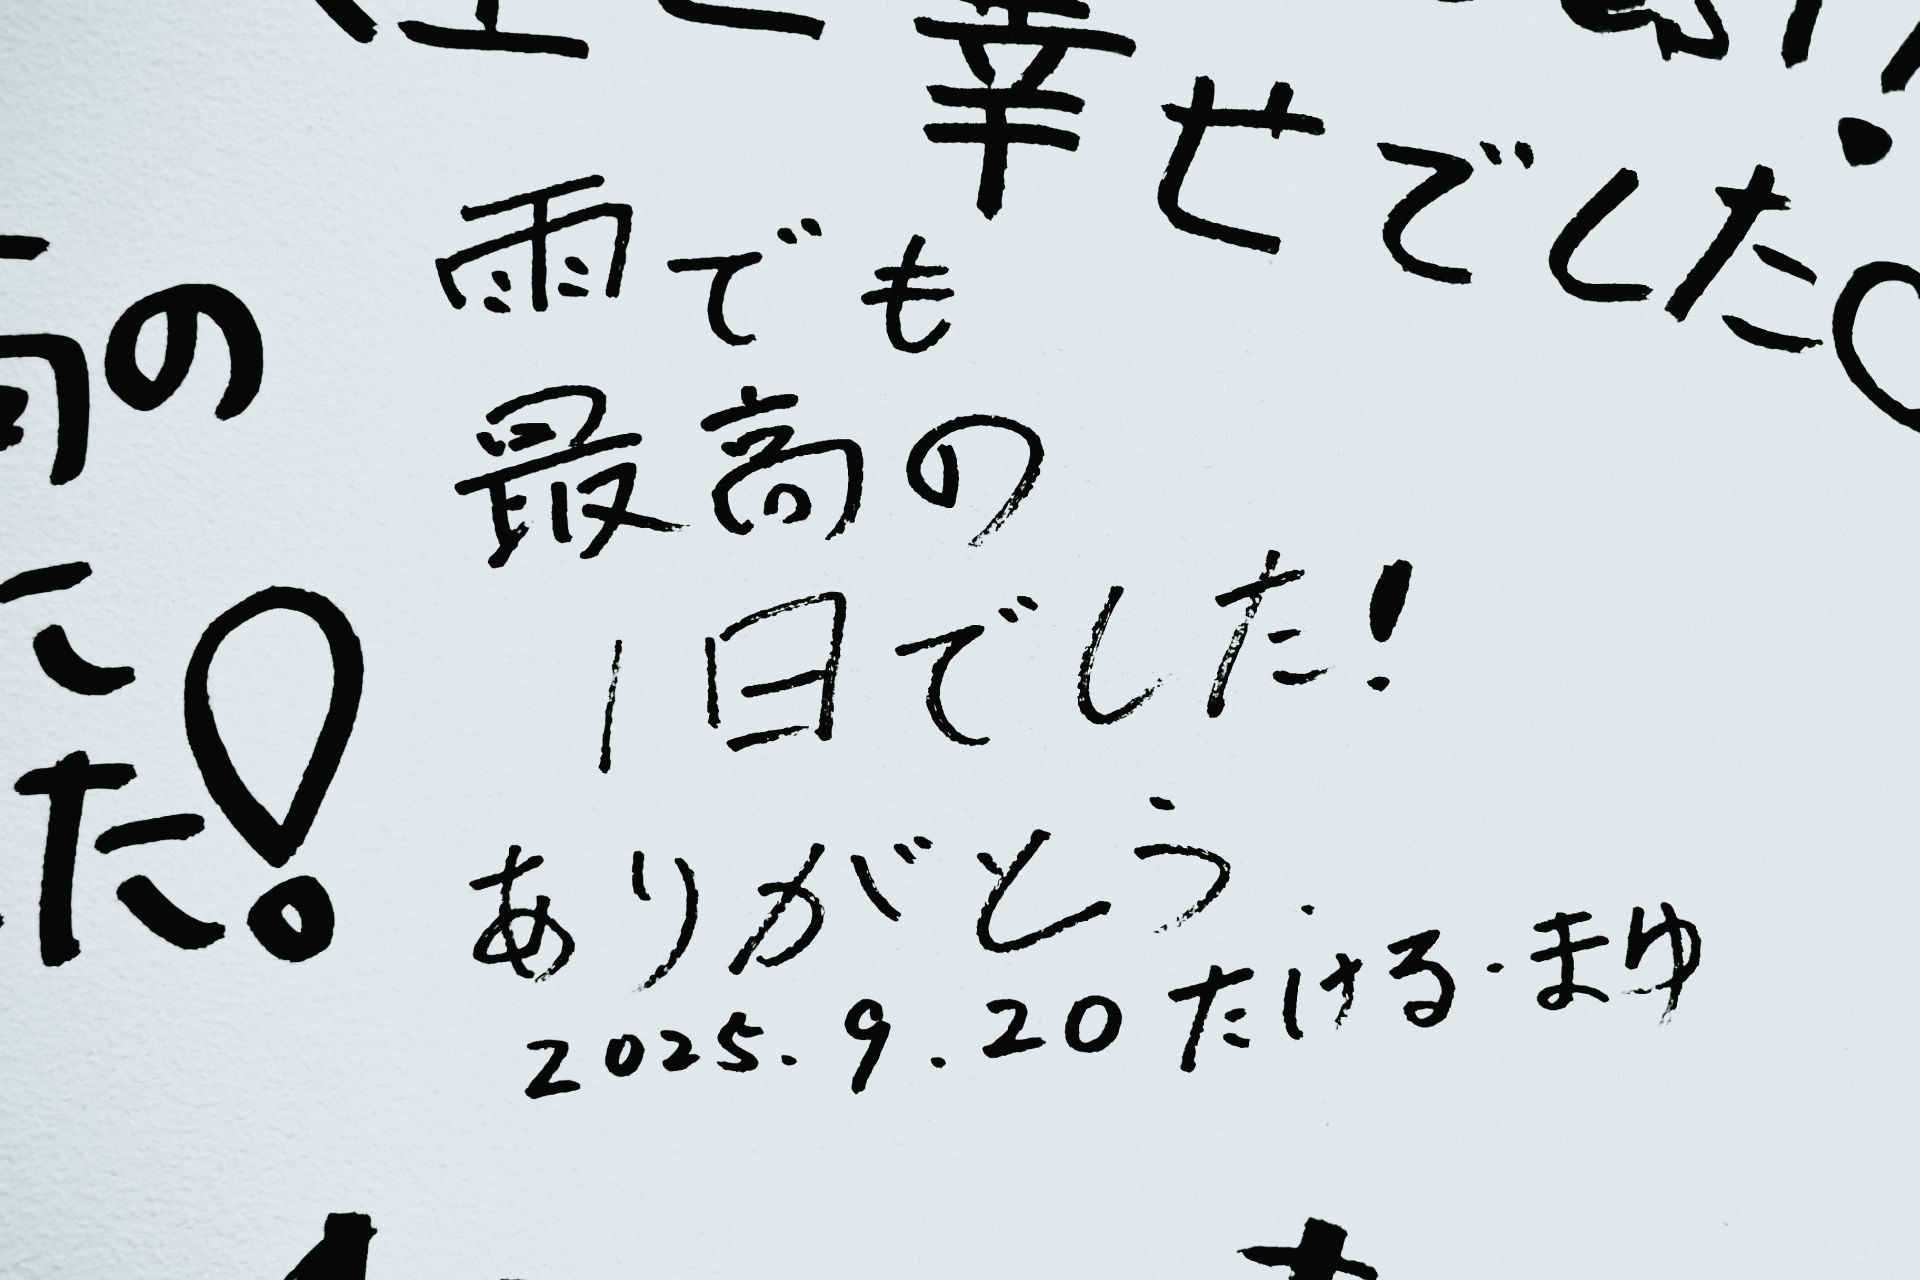 幸せでした
雨でも
最高の
1日でした!
ありがとう.
2025.9.20 たける・まゆ
の
た!